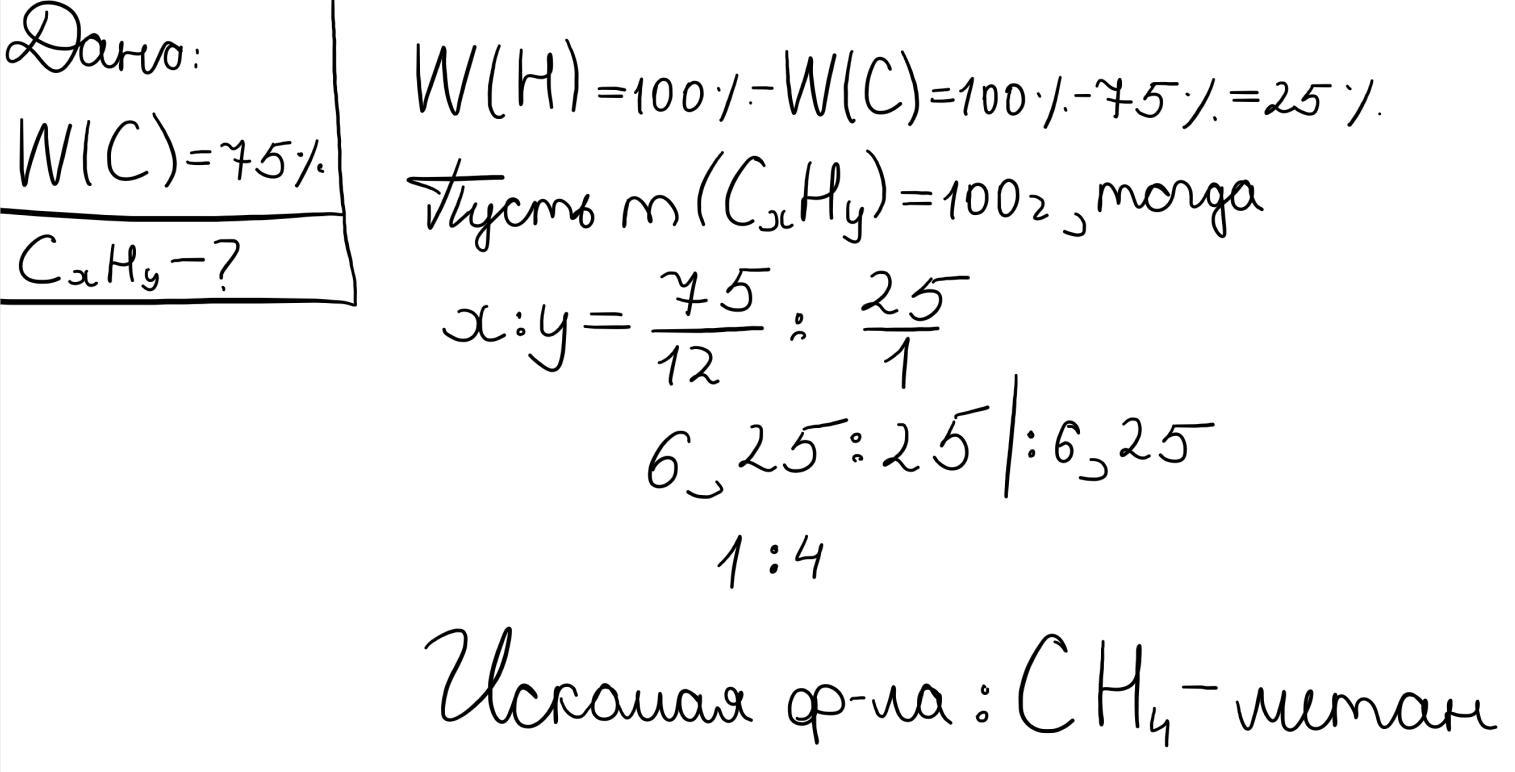 Дано:
W(C)=75%
CxHy-?
W(H)=100%-W(C)=100%-75%=25%
Пусть m(CxHy)=100г, тогда
x:y= 75/12 : 25/1
6,25:25|:6,25
1:4
Искомая ф-ла: CH4-метан